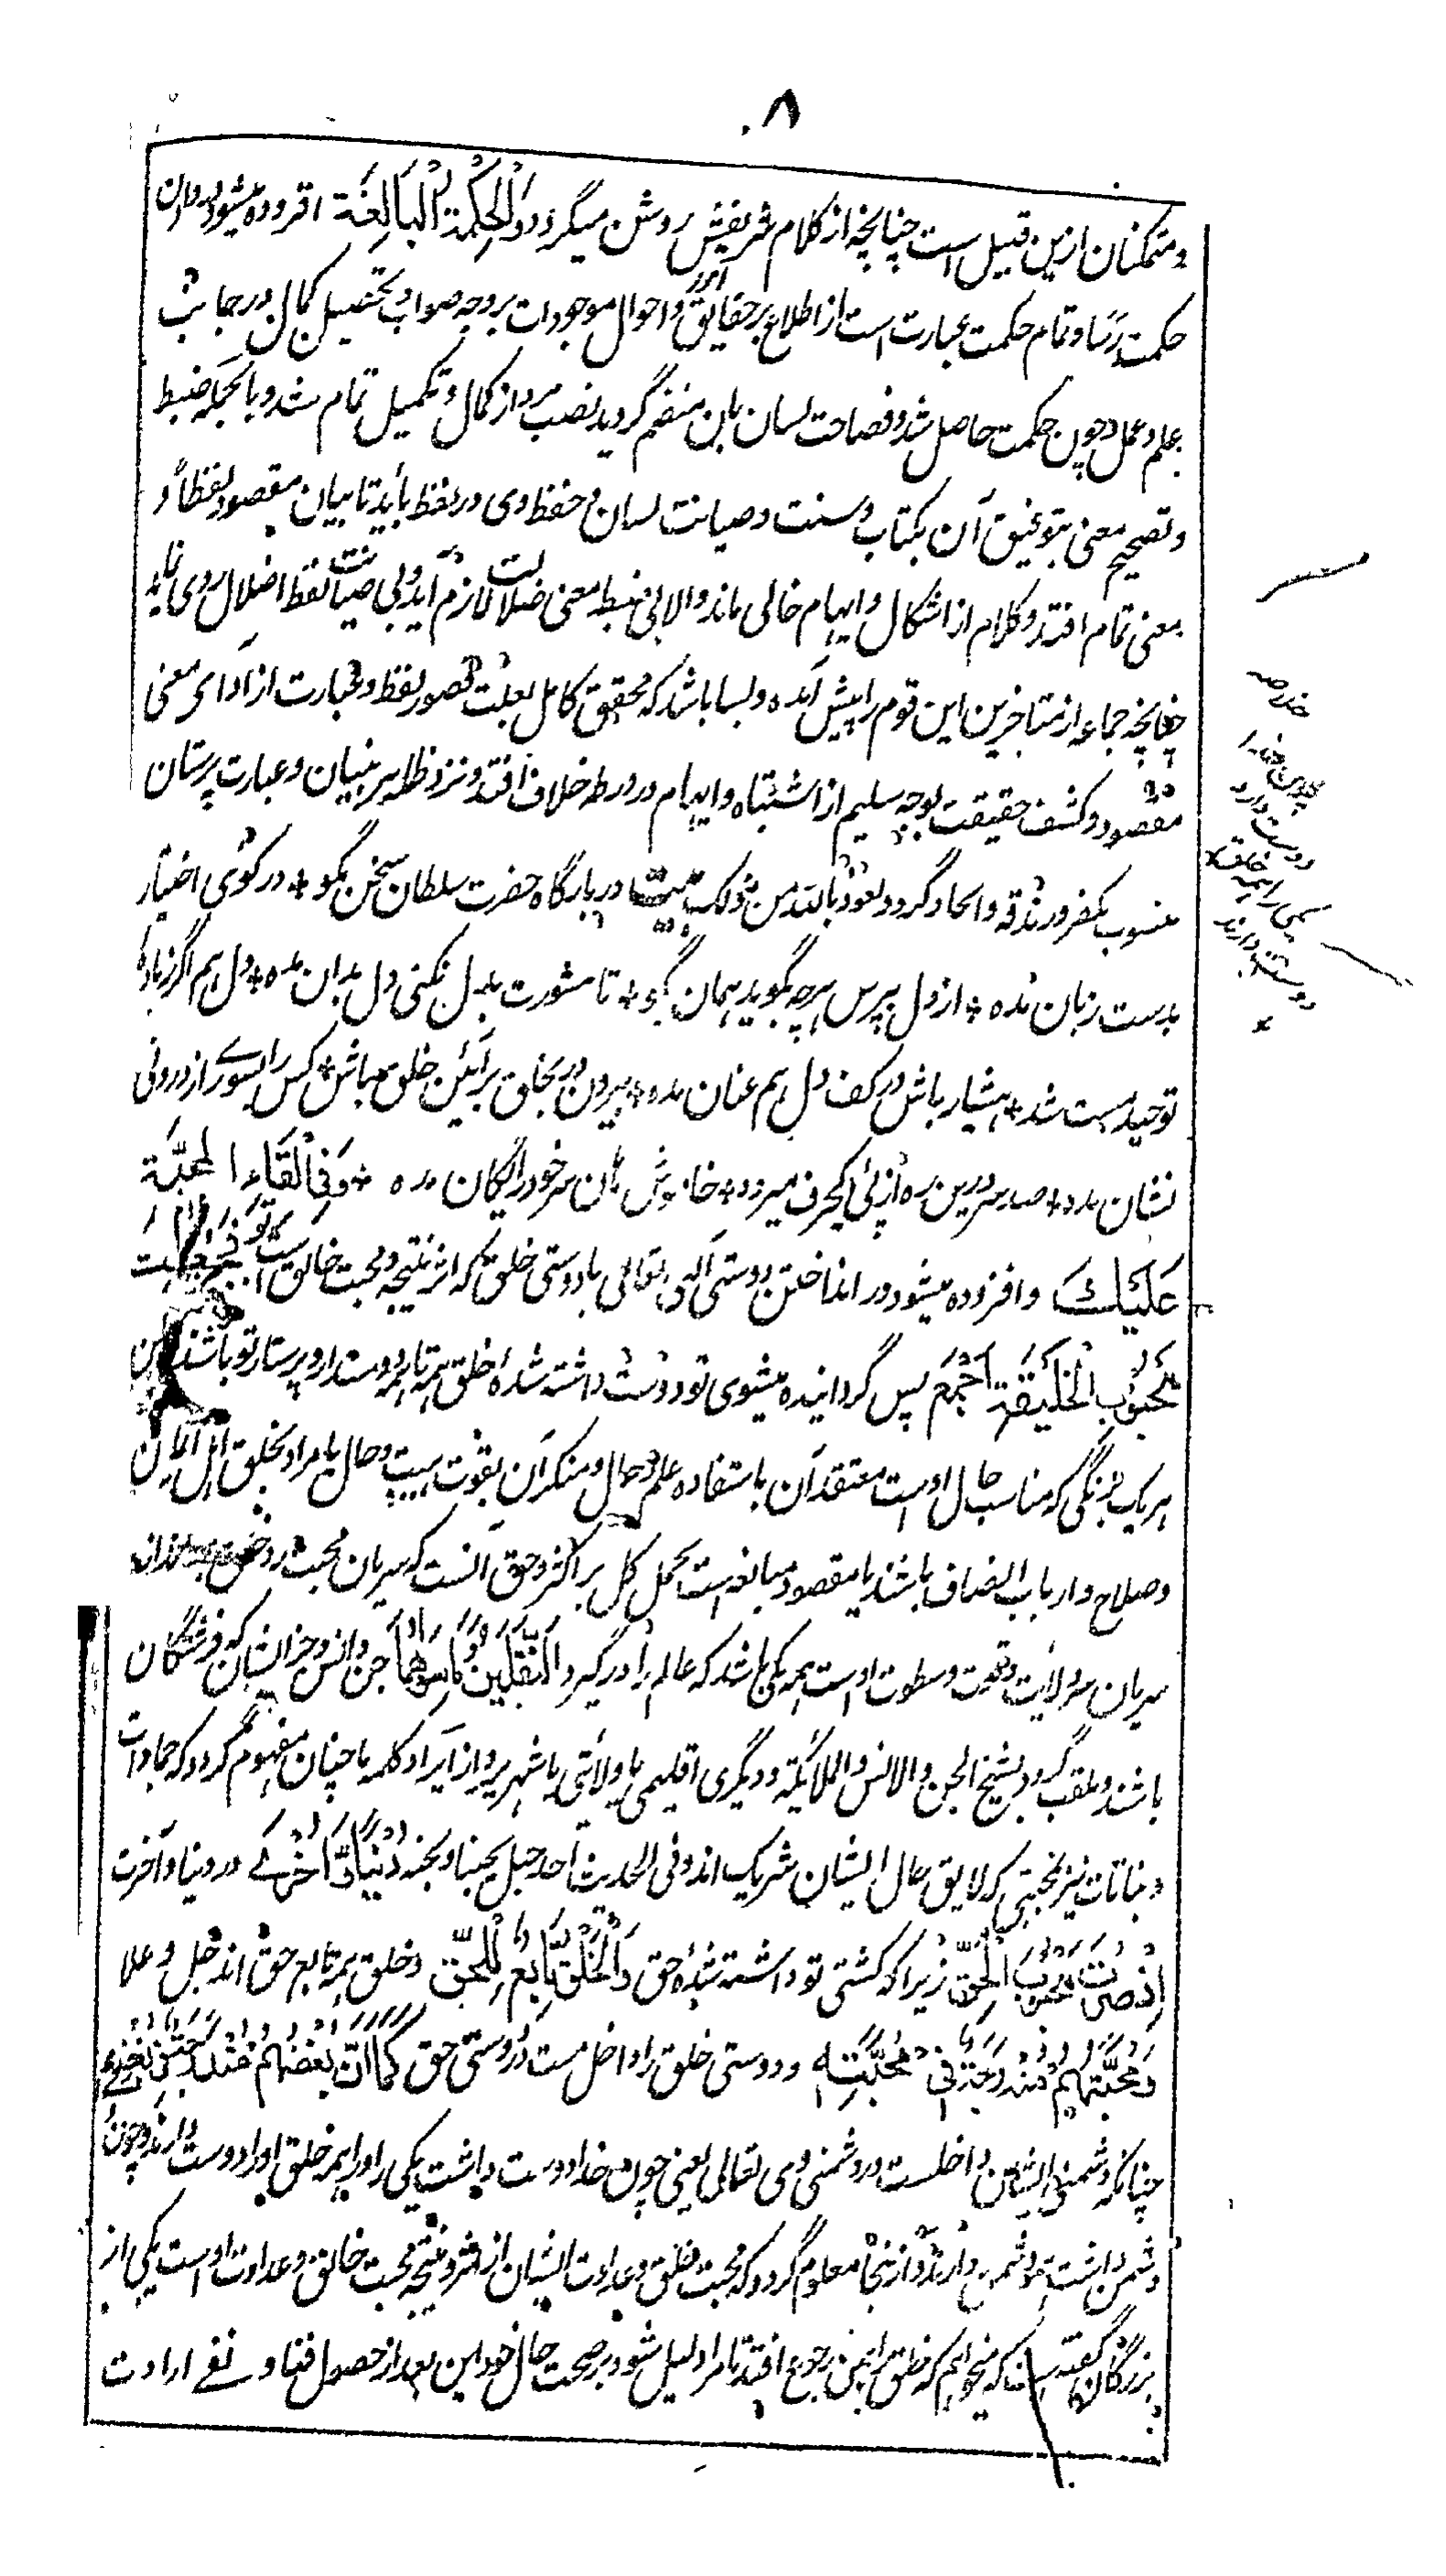 ۸
و متمکنان ازین قبیل است چنانچه از کلام شریفش روشن میگردد وَالْحِکْمَةُ الْبَالِغَة افزوده میشود بر آن
حکمت رسا و تمام حکمت عبارت است از اطلاع بر حقایق امور و احوال موجودات بر وجه صواب و تحصیل کمال در جانب
علم و عمل و چون حکمت حاصل شد و فصاحت لسان بان منضم گردید نصب مرد از کمال و تکمیل تمام شد و بالجمله ضبط
و تصحیح معنی بتوفیق آن بکتاب و سنت و صیانت لسان و حفظ وی در لفظ باید تا بیان مقصود لفظاً و
معنی تمام افتد و کلام از اشکال و ایهام خالی ماند و الا بی ضبط معنی ضلالت لازم آید و بی صیانت لفظ اضلال روی نماید
چنانچه جماعه از متاخرین این قوم را پیش آمده و بسا باشد که محقق کامل بعلت قصور لفظ و عبارت از ادای معنی
مقصود و کشف حقیقت بوجه سلیم از اشتباه و ایهام در ورطه خلاف افتد و نزد ظاهر بنیان و عبارت پرستان
منسوب بکفر و زندقه و الحاد گردد و نعوذ بالله من ذلک بیت در بارگاه حضرت سلطان سخن مگو * در کوی اختیار
بدست زبان مده * از دل بپرس هرچه بگوید همان بگو * تا مشورت بدل نکنی دل بدان مده * دل هم اگر زباده
توحید مست شد * هشیار باش در کف دل هم عنان مده * بیرون در بخلق بر آئین خلق باش * کس را بسوے راز درونی
نشان مده * صد سر درین ره از پئی یکحرف میرود * خاموش مان سر خود رایگان مده * وَفِی اِلْقَاءِ الْمَحَبَّةِ
عَلَیْكَ و افزوده میشود در انداختن دوستی الهی تعالی با دوستی خلق که اثر نتیجه محبت خالق است بر تو فَجُعِلْتَ
مَحْبُوْبَ الْخَلِیْقَةِ اَجْمَعَ پس گردانیده میشوی تو دوست داشته شدهٔ خلق همه تا همه دوستدار و پرستار تو باشند
هر یک برنگی که مناسب حال اوست معتقد آن باستفاده علم و حال و منکر آن بقوت هیبت و حال یا مراد بخلق اهل ایمان
و صلاح و ارباب انصاف باشند یا مقصود مبالغه است بحمل کل بر اکثر و حق آنست که سریان محبت مرد
سریان سر ولایت و قوت و سطوت اوست همه یکی باشد که عالم را در گیرد اَلثَّقَلَیْنِ وَمَا سِوَاهُمَا جن و انس و جز ایشان که فرشتگان
باشند و ملقب گردد بشیخ الجن و الانس و الملائکة و دیگری اقلیمی یا ولایتی یا شهری و از ایراد کلمه ما چنان مفهوم گردد که جمادات
و نباتات نیز بمحبتی که لایق حال ایشان شریک اند و فی الحدیث احد جبل یحبنا و نحبه دُنْیَا وَّاُخْرٰے در دنیا و آخرت
اِذْ صِرْتَ مَحْبُوْبَ الْحَقِّ زیرا که گشتی تو داشته شدهٔ حق وَالْخَلْقُ تَابِعٌ لِلْحَقِّ و خلق همه تابع حق اند جل و علا
وَمَحَبَّتُهُمْ مُنْدَرِجَةٌ فِیْ مَحَبَّتِهٖ و دوستی خلق را داخل ست در دوستی حق کَمَا اَنَّ بُغْضَهُمْ مُنْدَرِجٌ فِیْ بُغْضِهٖ
چنانکه دشمنی ایشان داخلست در دشمنی وی تعالی یعنی چون خدا دوست داشت یکی را همه خلق او را دوست دارند و چون
دشمن داشت همه دشمن دارند و از ینجا معلوم گردد که محبت خلق و عداوت ایشان اثر و نتیجه محبت خالق و عداوت اوست یکی از
بزرگان گفته است که میخواهم که خلق را بمن رجوع افتد تا مرا دلیل شود بر صحت حال خود این بعد از حصول فنا و نفے ارادت
خلاصه
چون خدا
دوست دارد
یکی را همه خلق
دوست دارند